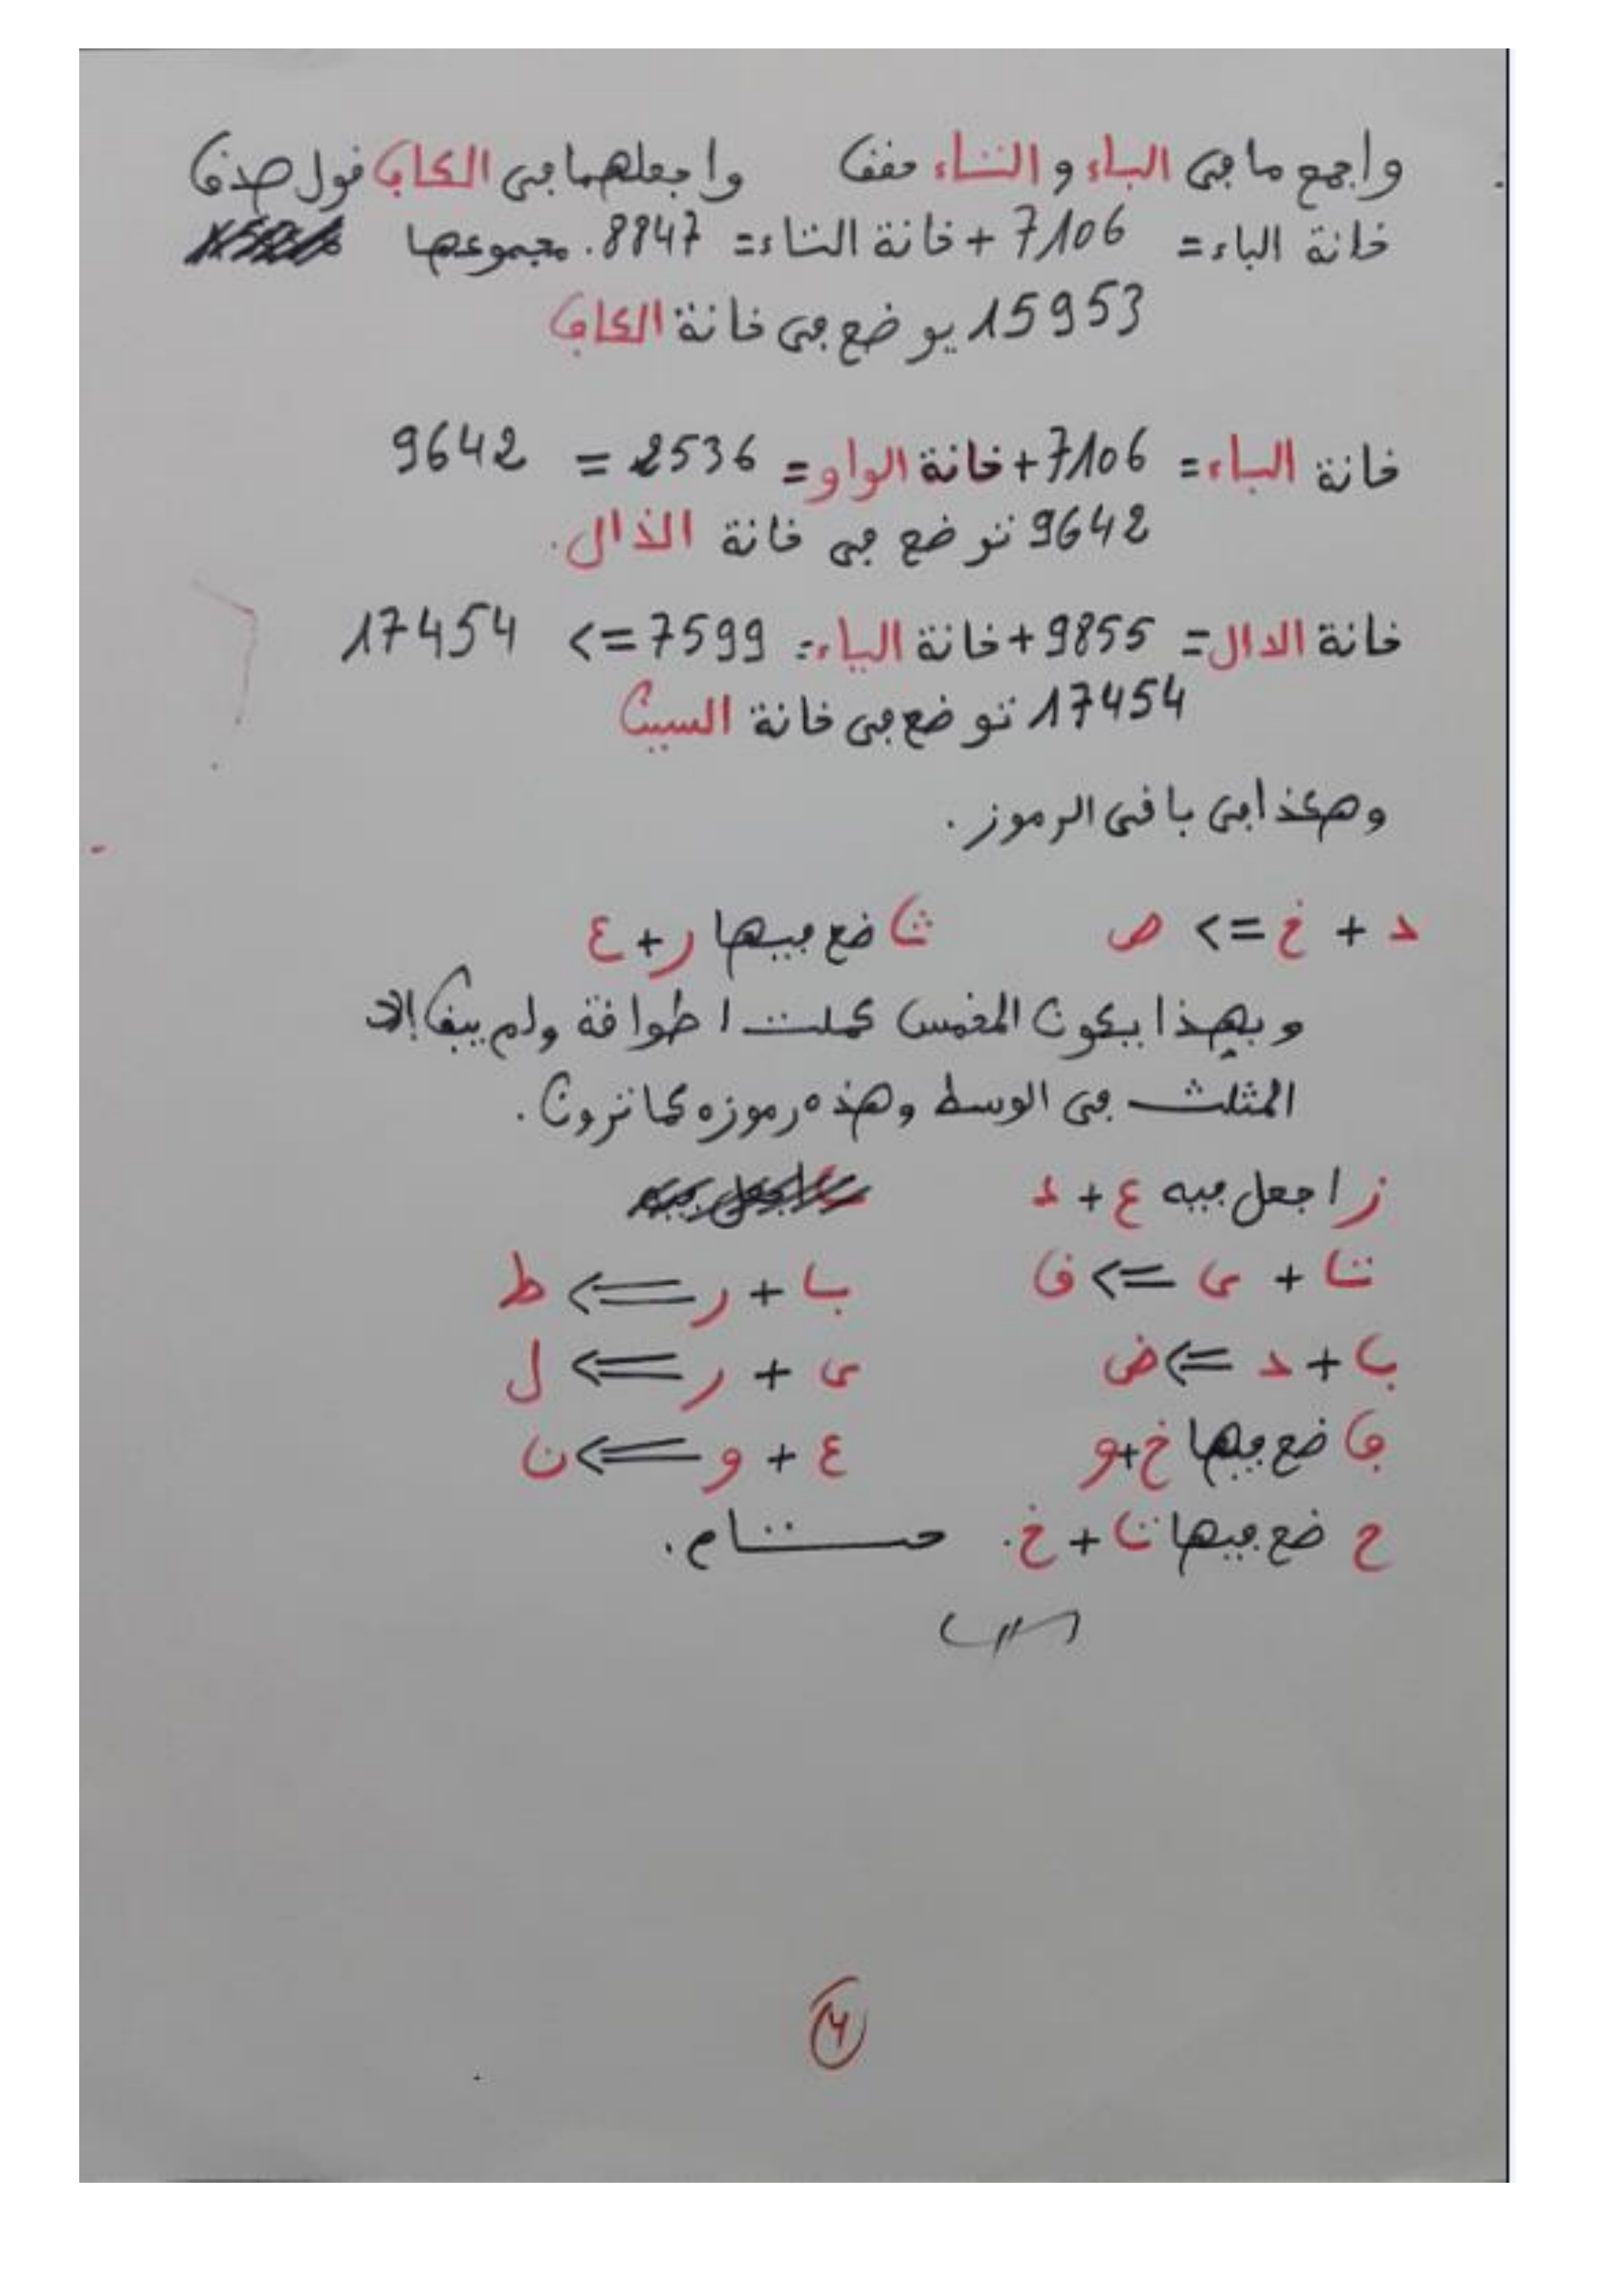 واجمع ما في الباء والتاء حقق واجعلهما في الكاف قول صدق
خانة الباء = 7106 + خانة التاء = 8847. مجموعها
15953 يوضع في خانة الكاف
خانة الباء = 7106 + خانة الواو = 2536 = 9642
9642 توضع في خانة الذال.
خانة الدال = 9855 + خانة الياء = 7599 => 17454
17454 توضع في خانة السين
وهكذا في باقي الرموز.
د + خ => ص ث ضع فيها ر + ع
وبهذا يكون المخمس كملت اطواقة ولم يبق إلا
المثلث في الوسط وهذه رموزه كما ترون.
ز اجعل فيه ع + د
ت + ى => ق ب + ر => ط
ب + د => ض ى + ر => ل
ف ضع فيها خ + و ع + و => ن
ح ضع فيها ت + خ. ختام.